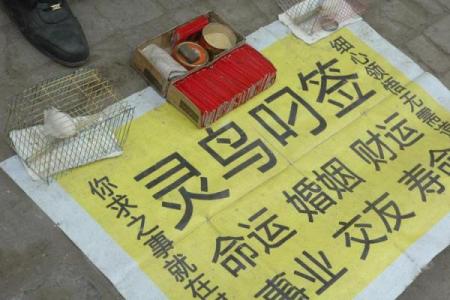 灵鸟叼签
命运 婚姻 财运
事业 交友 寿命
你求之事就在
细心领悟无需